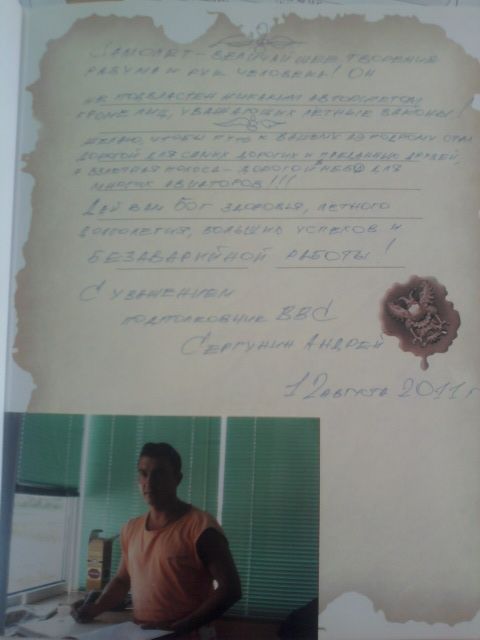 САМОЛЕТ - ВЕЛИЧАЙШЕЕ ТВОРЕНИЕ
РАЗУМА И РУК ЧЕЛОВЕКА! ОН
НЕ ПОДВЛАСТЕН НИКАКИМ АВТОРИТЕТАМ
КРОМЕ ЛИЦ, УВАЖАЮЩИХ ЛЕТНЫЕ ЗАКОНЫ!
ЖЕЛАЮ, ЧТОБЫ ПУТЬ К ВАШЕМУ АЭРОДРОМУ СТАЛ
ДОРОГОЙ ДЛЯ САМЫХ ДОРОГИХ И ПРЕДАННЫХ ДРУЗЕЙ,
А ВЗЛЕТНАЯ ПОЛОСА - ДОРОГОЙ В НЕБО ДЛЯ
МНОГИХ АВИАТОРОВ!!!
ДАЙ ВАМ БОГ ЗДОРОВЬЯ, ЛЕТНОГО
ДОЛГОЛЕТИЯ, БОЛЬШИХ УСПЕХОВ И
БЕЗАВАРИЙНОЙ РАБОТЫ!
С УВАЖЕНИЕМ
ПОДПОЛКОВНИК ВВС
СЕРГУНИН АНДРЕЙ
12 АВГУСТА 2011 Г